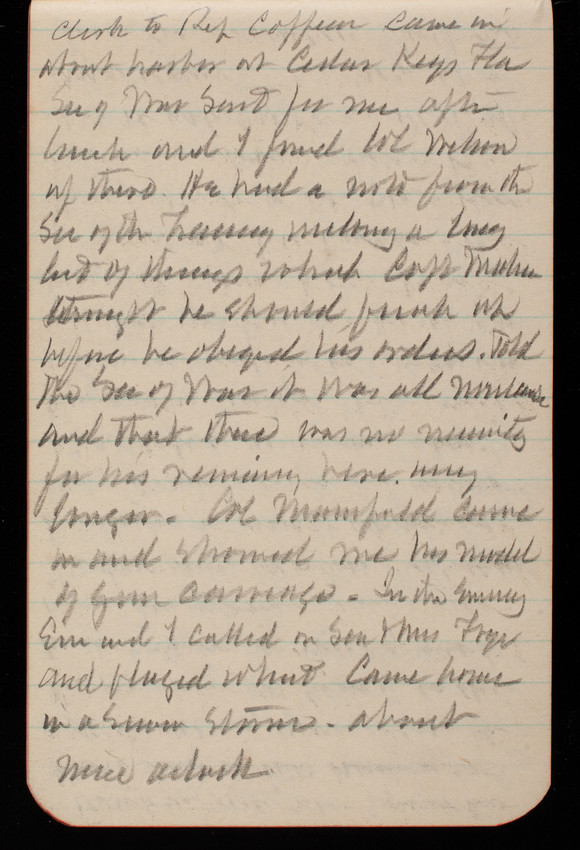 Clerk to Rep Coffeen came in
about harbor at Cedar Keys Fla
Sec of War sent for me after
lunch and I found Col Wilson
up there. He had a note from the
Sec of the Treasury making a long
list of things which Capt Mahan
thought he should finish up
before he obeyed his orders. Told
the Sec of War it was all nonsense
and that there was no necessity
for his remaining here any
longer. Col Mansfield came
in and showed me his model
of gun carriage - In the evening
Em and I called on Gen & Mrs
and played whist Came home
in a snow storm - about
nine oclock